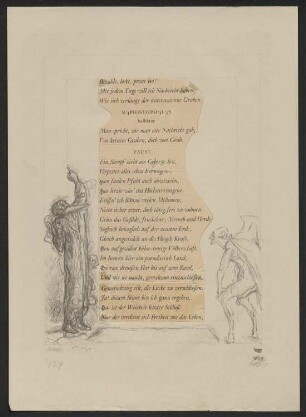 Bezahle, locke, presse bei!
Mit jedem Tage will ich Nachricht haben,
Wie sich verlängt der unternommene Graben.
MEPHISTOPHELES
halblaut
Man spricht, wie man mir Nachricht gab,
Von keinem Graben, doch vom Grab.
FAUST
Ein Sumpf zieht am Gebirge hin,
Verpestet alles schon Errungne;
Den faulen Pfuhl auch abzuziehn,
Das letzte wär' das Höchsterrungne.
Eröffn' ich Räume vielen Millionen,
Nicht sicher zwar, doch tätig-frei zu wohnen.
Grün das Gefilde, fruchtbar; Mensch und Herde
Sogleich behaglich auf der neusten Erde,
Gleich angesiedelt an des Hügels Kraft,
Den aufgewälzt kühn-emsige Völkerschaft.
Im Innern hier ein paradiesisch Land,
Da rase draußen Flut bis auf zum Rand,
Und wie sie nascht, gewaltsam einzuschießen,
Gemeindrang eilt, die Lücke zu verschließen.
Ja! diesem Sinne bin ich ganz ergeben,
Das ist der Weisheit letzter Schluß:
Nur der verdient sich Freiheit wie das Leben,